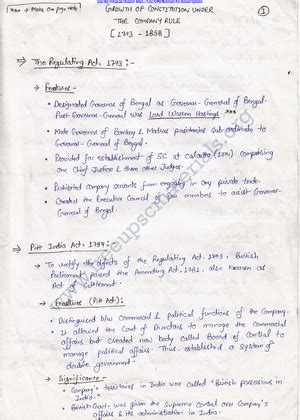 GROWTH OF CONSTITUTION UNDER
THE COMPANY RULE
[1773 - 1858]
1
⇒ The Regulating Act, 1773 :-
→ Features -
• Designated Governor of Bengal as Governor-General of Bengal.
First Governor-General was Lord Warren Hastings.
• Made Governors of Bombay & Madras presidencies subordinate to
Governor-General of Bengal.
• Provided for establishment of SC at Calcutta (1774) comprising
one Chief Justice & three other Judges.
• Prohibited Company servants from engaging in any private trade.
• Created the Executive Council of members to assist Governor-
General of Bengal.
⇒ Pitt India Act, 1784 :-
→ To rectify the defects of the Regulating Act, 1773, British
Parliament passed the Amending Act, 1781, also known as
Act Settlement.
→ Features (Pitt Act) :
• Distinguished b/w Commercial & political functions of the Company.
• It allowed the Court of Directors to manage the Commercial
affairs but created new body called Board of Control to
manage political affairs. Thus, established a system of
double government.
→ Significance -
• Company's territories in India were called "British possessions in
India".
• British Govt. was given the Supreme Control over Company's
affairs & its administration in India.
www.freeupscmaterials.org